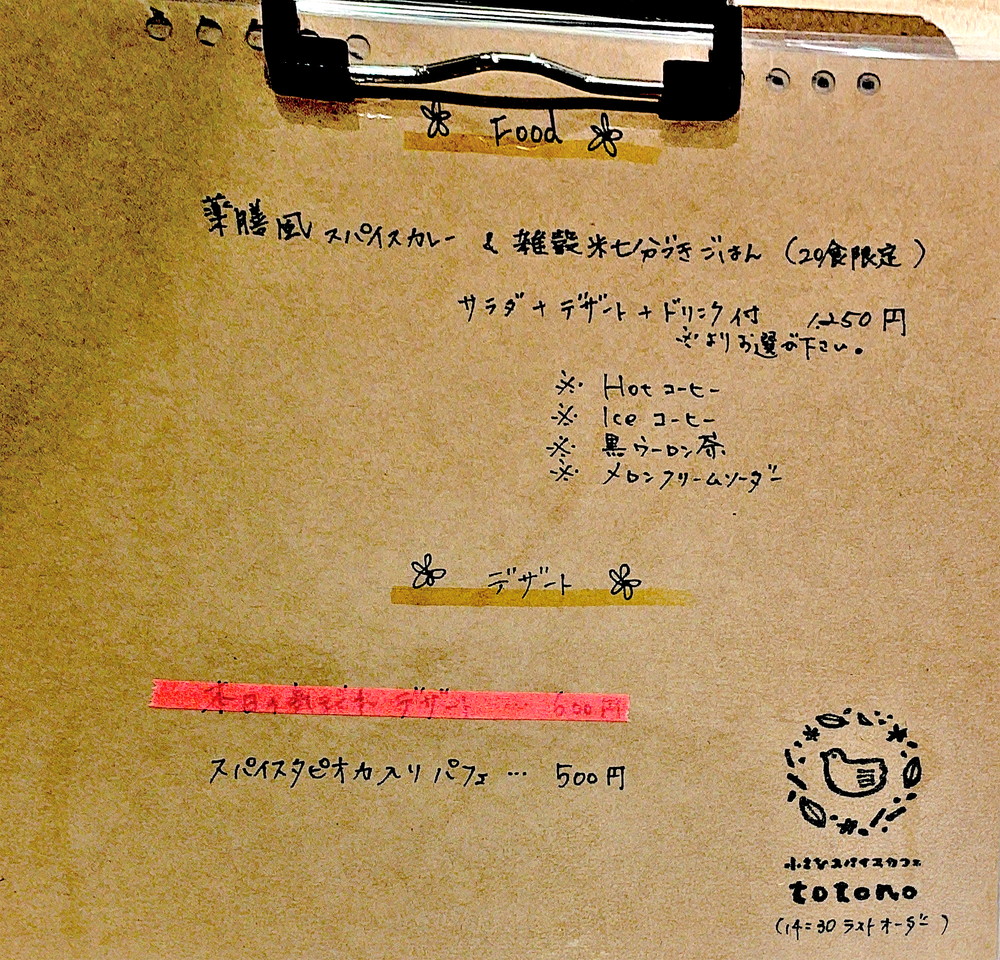 Food
薬膳風 スパイスカレー & 雑穀米七分づきごはん (20食限定)
サラダ + デザート + ドリンク付 1,250円
※よりお選び下さい。
※ Hot コーヒー
※ Ice コーヒー
※ 黒ウーロン茶
※ メロンクリームソーダー
デザート
本日の デザート … 600円
スパイスタピオカ入り パフェ … 500円
小さなスパイスカフェ
totono
(14:30 ラストオーダー)